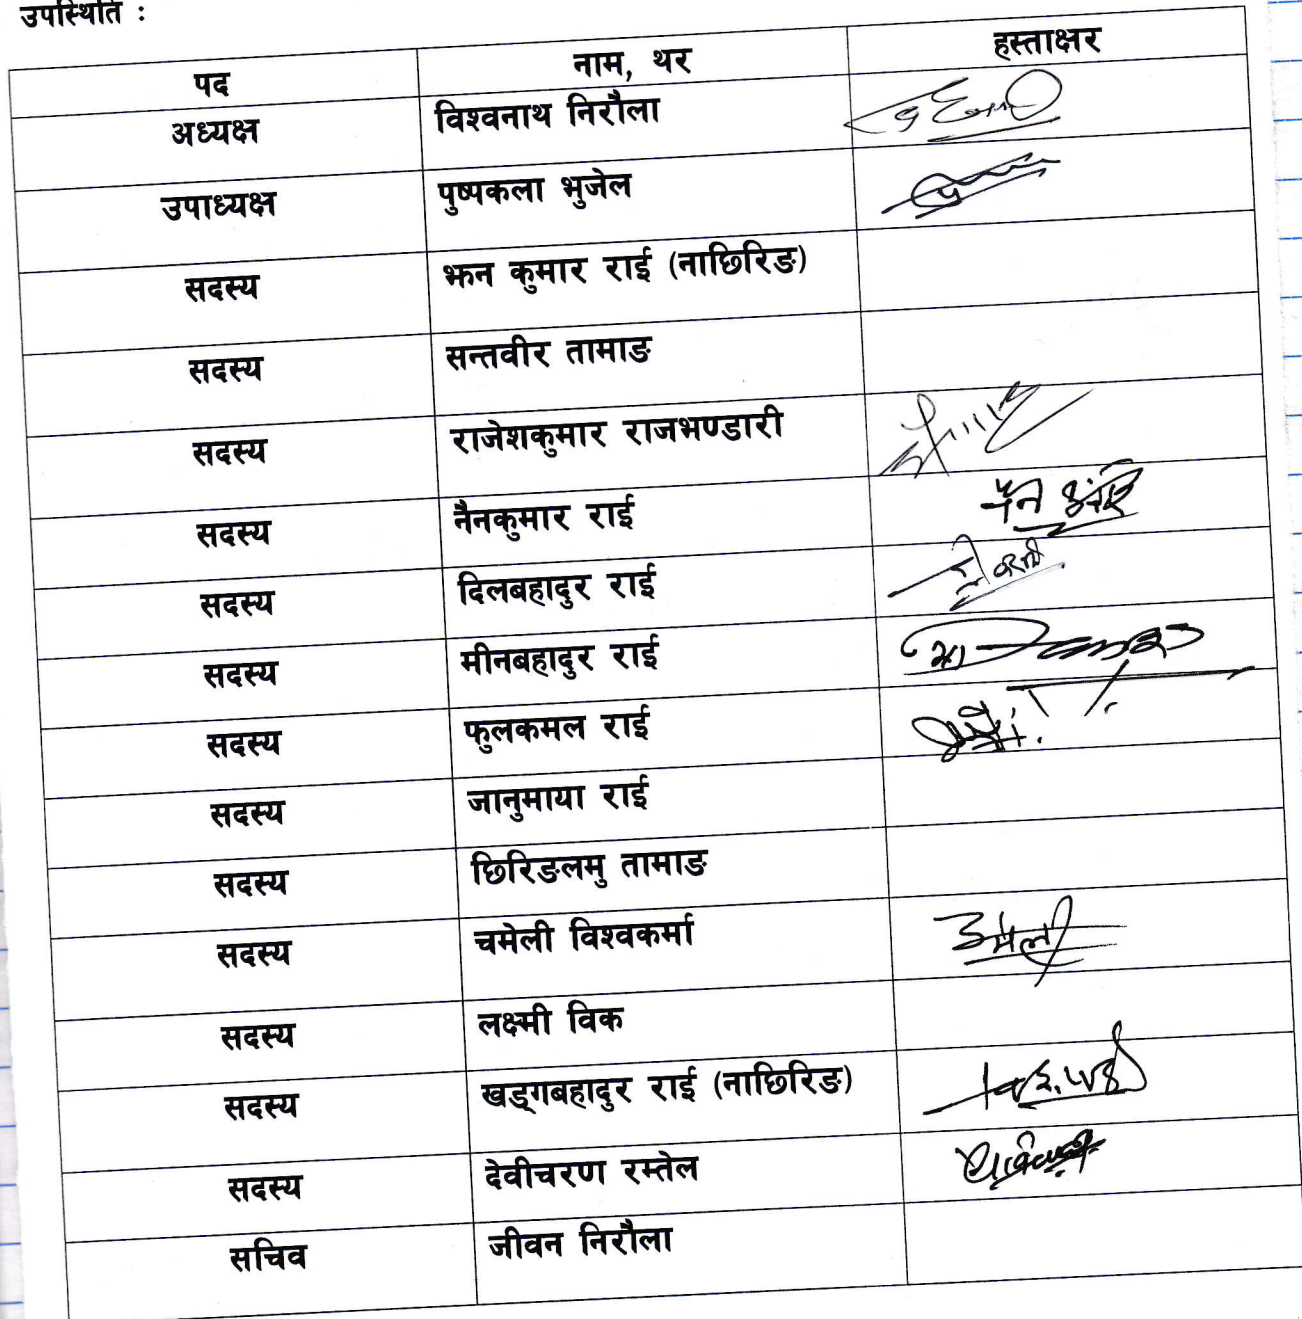 उपस्थिति :
पद नाम, थर हस्ताक्षर
अध्यक्ष विश्वनाथ निरौला
उपाध्यक्ष पुष्पकला भुजेल
सदस्य झन कुमार राई (नाछिरिङ)
सदस्य सन्तवीर तामाङ
सदस्य राजेशकुमार राजभण्डारी
सदस्य नैनकुमार राई
सदस्य दिलबहादुर राई
सदस्य मीनबहादुर राई
सदस्य फुलकमल राई
सदस्य जानुमाया राई
सदस्य छिरिङलमु तामाङ
सदस्य चमेली विश्वकर्मा
सदस्य लक्ष्मी विक
सदस्य खड्गबहादुर राई (नाछिरिङ)
सदस्य देवीचरण रम्तेल
सचिव जीवन निरौला